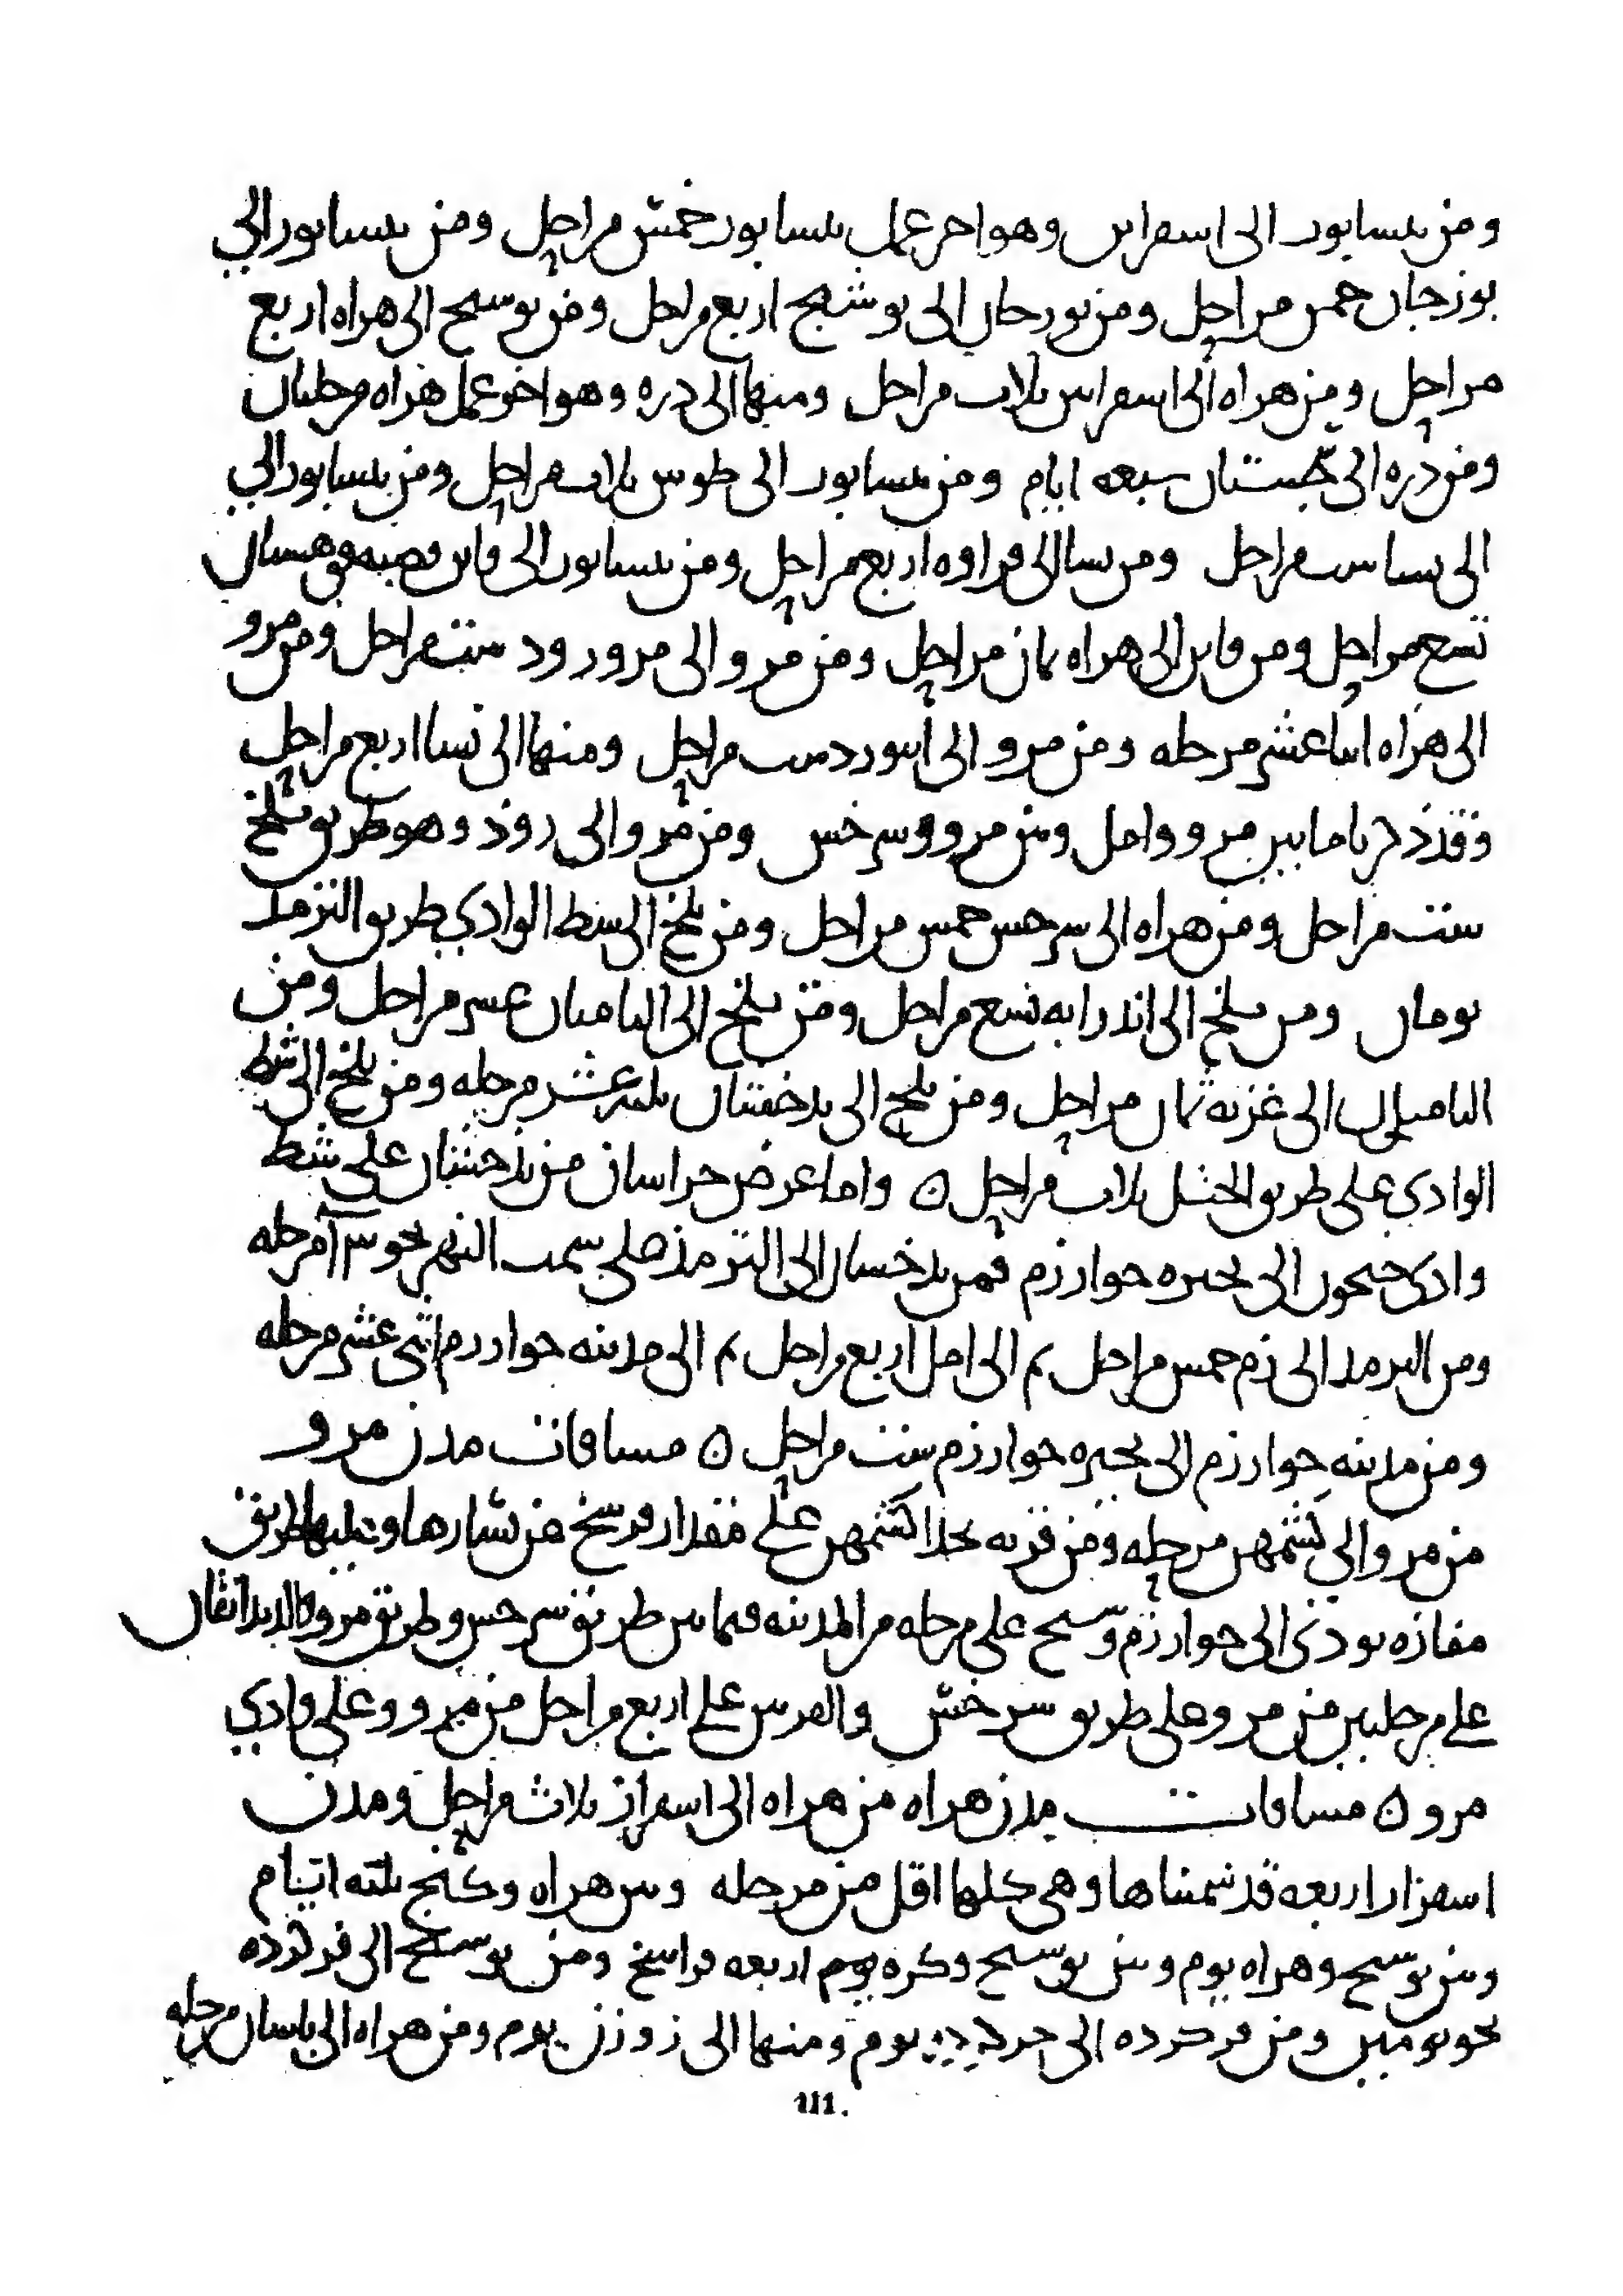 ومن نيسابور الى اسفراين وهو اخر عمل نيسابور خمس مراحل ومن نيسابور الي
بوزجان خمس مراحل ومن بوزجان الى بوشنج اربع مراحل ومن بوسنج الى هراه اربع
مراحل ومن هراه الى اسفراين ثلاث مراحل ومنها الى دره وهو اخر عمل هراه مرحلتان
ومن دره الى سجستان سبعه ايام ومن نيسابور الى طوس ثلاث مراحل ومن نيسابور الي
الى نسا ست مراحل ومن نسا الى فراوه اربع مراحل ومن نيسابور الى قاين قصبه قوهستان
تسع مراحل ومن قاين الى هراه ثمان مراحل ومن مرو الى مرورود ست مراحل ومن مرو
الى هراه اثنا عشر مرحله ومن مرو الى ابيورد ست مراحل ومنها الى نسا اربع مراحل
وقد ذكرنا ما بين مرو وامل وبين مرو وسرخس ومن مرو الى روذ وهو طريق بلخ
ست مراحل ومن هراه الى سرخس خمس مراحل ومن بلخ الى شط الوادي طريق الترمذ
يومان ومن بلخ الى اندرابه تسع مراحل ومن بلخ الى الباميان عشر مراحل ومن
الباميان الى غزنه ثمان مراحل ومن بلخ الى بدخشان ثلثه عشر مرحله ومن بلخ الى شط
الوادي على طريق الختل ثلاث مراحل ٥ واما عرض خراسان من بذخشان على شط
وادى جيحون الى بحيره خوارزم فمن بدخشان الى الترمذ على سمت النهر نحو مرحله
ومن الترمذ الى زم خمس مراحل ثم الى امل اربع مراحل ثم الى مدينه خوارزم اثنى عشر مرحله
ومن مدينه خوارزم الى بحيره خوارزم ست مراحل ٥ مسافات مدن مرو
من مرو الي كشميهن مرحله ومن قريه بحذا كشميهن على مقدار فرسخ من يسارها وعليها طريق
مفازه يودى الى خوارزم وسنج على مرحله من المدينه فيما بين طريق سرخس وطريق مرو والدندانقان
على مرحلتين من مرو على طريق سرخس والقرينين على اربع مراحل من مرو وعلى وادي
مرو ٥ مسافات مدن هراه من هراه الى اسفزار ثلاث مراحل ومدن
اسفزار اربعه قد سميناها وهى كلها اقل من مرحله وبين هراه وكنج ثلثه ايام
وبين بوسنج وهراه يوم وبين بوسنج وكره يوم اربعه فراسخ ومن بوسنج الى فركرده
نحو يومين ومن فركرده الى خركرد يوم ومنها الى زوزن يوم ومن هراه الى باسان مرحله
111.